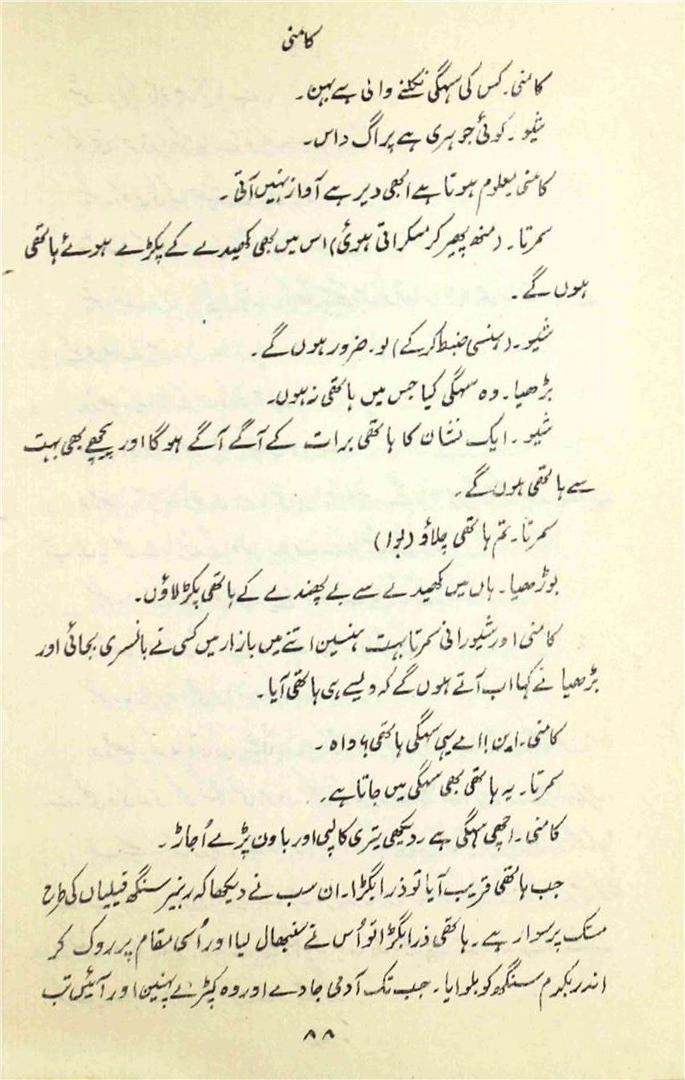 کامنی
کامنی۔ کس کی سہگی نکلنے والی ہے بہن۔
شیو۔ کوئی جوہری ہے پراگ داس۔
کامنی۔ معلوم ہوتا ہے ابھی دیر ہے آواز نہیں آتی۔
سمرتا۔ (منھ پھیر کر مسکراتی ہوئی) اس میں بھی کھیدے کے پکڑے ہوئے ہاتھی
ہوں گے۔
شیو۔ (ہنسی ضبط کرکے) لو۔ ضرور ہوں گے۔
بڑھیا۔ وہ سہگی کیا جس میں ہاتھی نہ ہوں۔
شیو۔ ایک نشان کا ہاتھی برات کے آگے آگے ہوگا اور پیچھے بھی بہت
سے ہاتھی ہوں گے۔
سمرتا۔ تم ہاتھی چلاؤ (بوا)
بوڑھیا۔ ہاں میں کھیدے سے بے پھندے کے ہاتھی پکڑ لاؤں۔
کامنی اور شیورانی سمرتا بہت ہنسین اتنے میں بازار میں کسی نے بانسری بجائی اور
بڑھیا نے کہا اب آتے ہوں گے کہ ویسے ہی ہاتھی آیا۔
کامنی۔ این! اے یہی سہگی ہاتھی؟ واہ۔
سمرتا۔ یہ ہاتھی بھی سہگی میں جاتا ہے۔
کامنی۔ اچھی سہگی ہے۔ دیکھی تیری کالپی اور باون پڑے اُجاڑ۔
جب ہاتھی قریب آیا تو ذرا بگڑا۔ ان سب نے دیکھا کہ رنبیر سنگھ فیلبان کی طرح
مستک پر سوار ہے۔ ہاتھی ذرا بگڑا تو اُس نے سنبھال لیا اور اُسی مقام پر روک کر
اندر بکرم سنگھ کو بلوایا۔ جب تک آدمی جاوے اور وہ کپڑے پہنین اور آئیں تب
۸۸